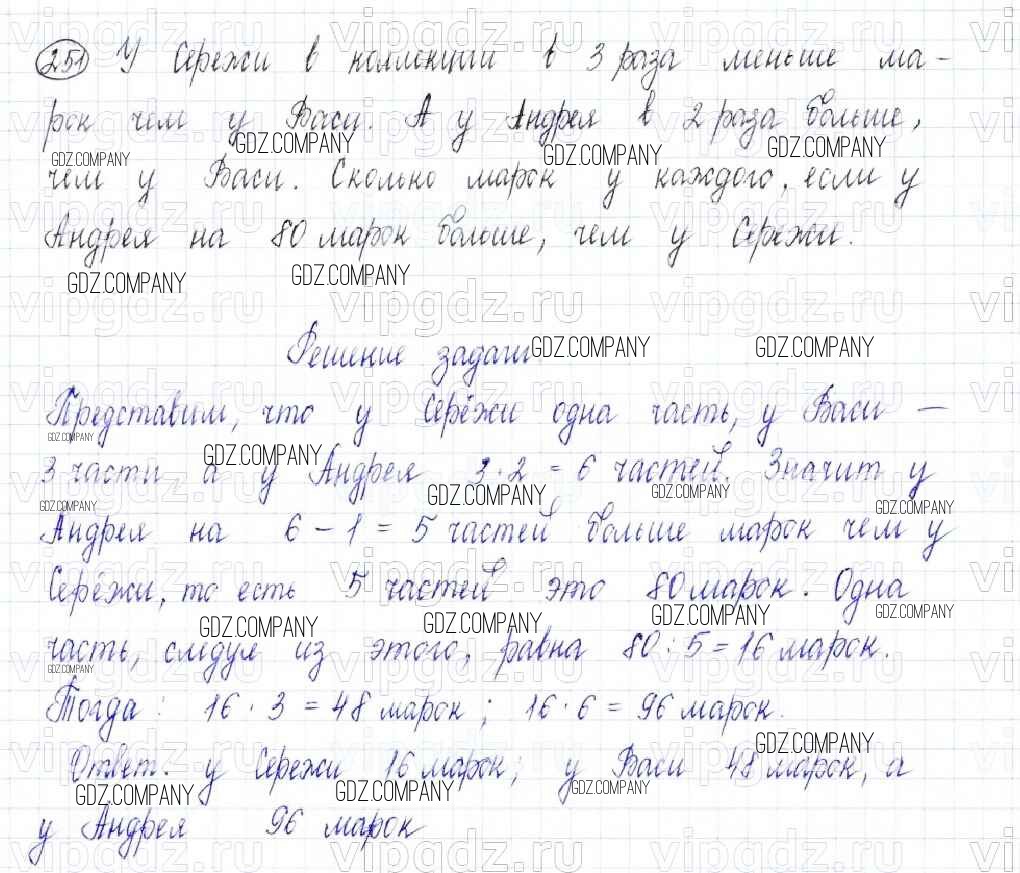 251 У Сережи в коллекции в 3 раза меньше ма-
рок чем у Васи. А у Андрея в 2 раза больше,
чем у Васи. Сколько марок у каждого, если у
Андрея на 80 марок больше, чем у Сережи.
Решение задачи
Представим, что у Серёжи одна часть, у Васи —
3 части а у Андрея 3·2 = 6 частей. Значит у
Андрея на 6 – 1 = 5 частей больше марок чем у
Серёжи, то есть 5 частей это 80 марок. Одна
часть, следуя из этого, равна 80 : 5 = 16 марок.
Тогда: 16 · 3 = 48 марок; 16 · 6 = 96 марок.
Ответ: у Сережи 16 марок; у Васи 48 марок, а
у Андрея 96 марок